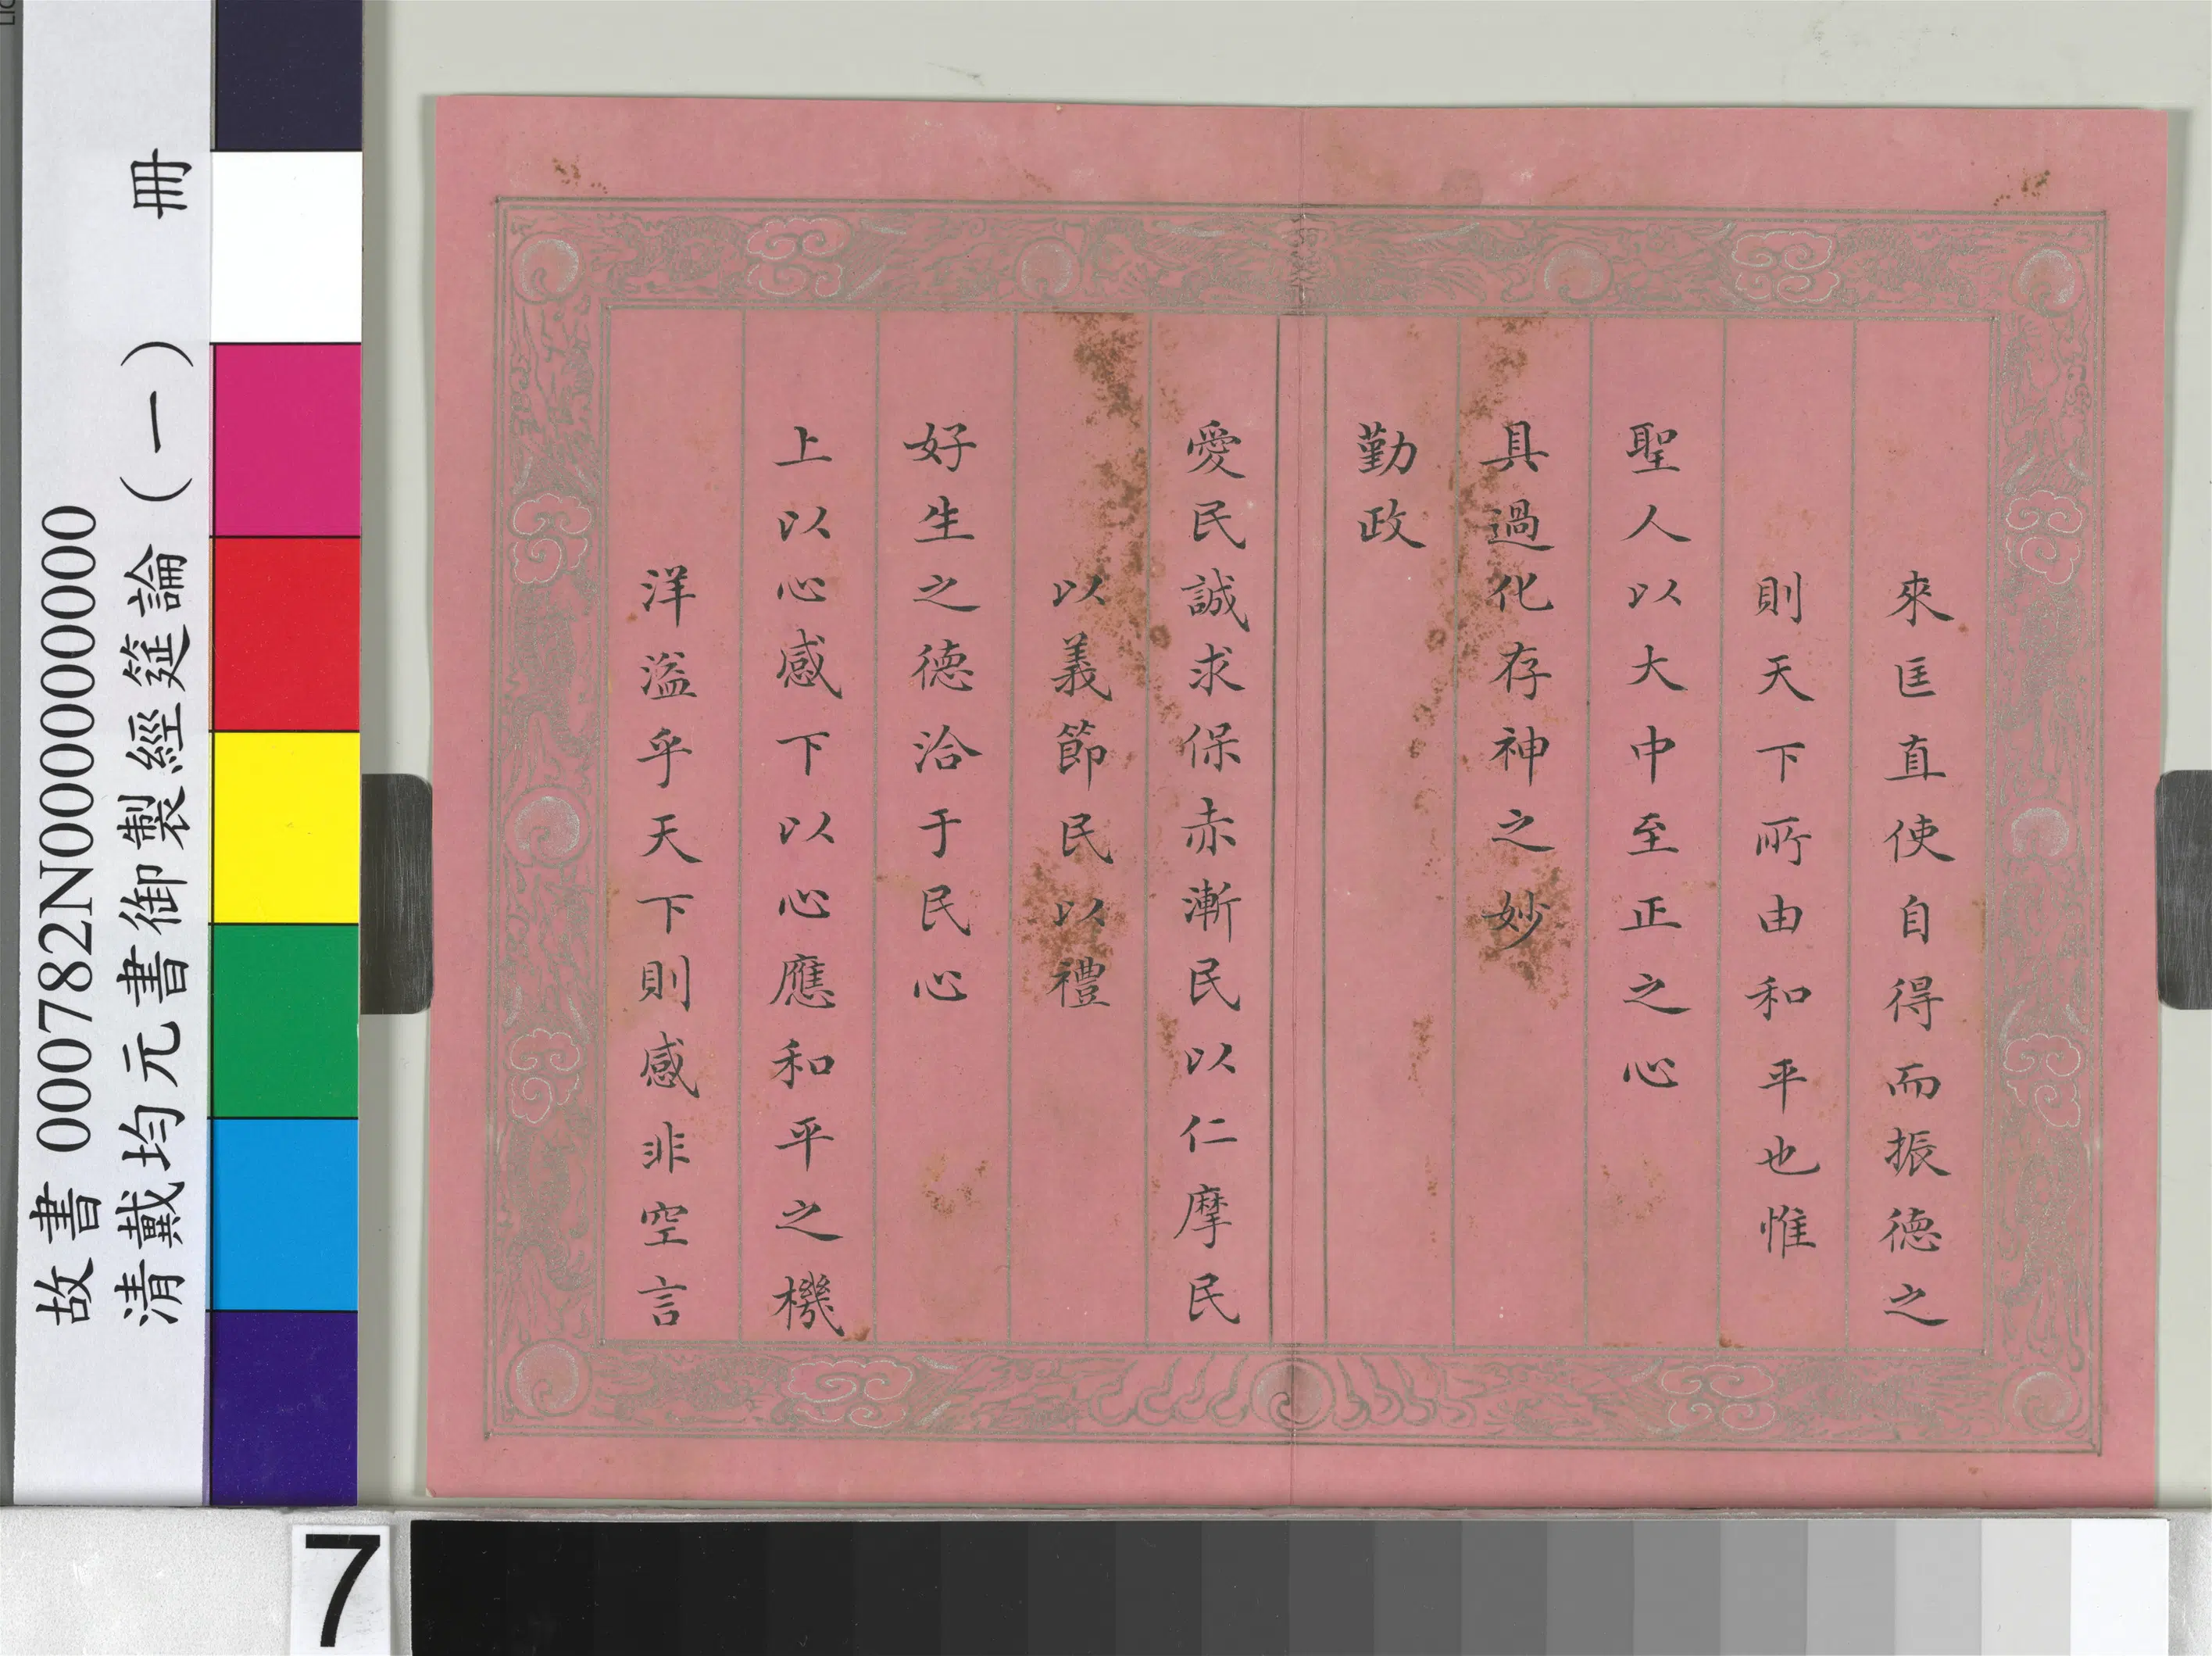 來匡直使自得而振德之
則天下所由和平也惟
聖人以大中至正之心
具過化存神之妙
勤政
愛民誠求保赤漸民以仁摩民
以義節民以禮
好生之德洽于民心
上以心感下以心應和平之機
洋溢乎天下則感非空言
故書 000782N000000000
清戴均元書御製經筵論(一) 冊
7